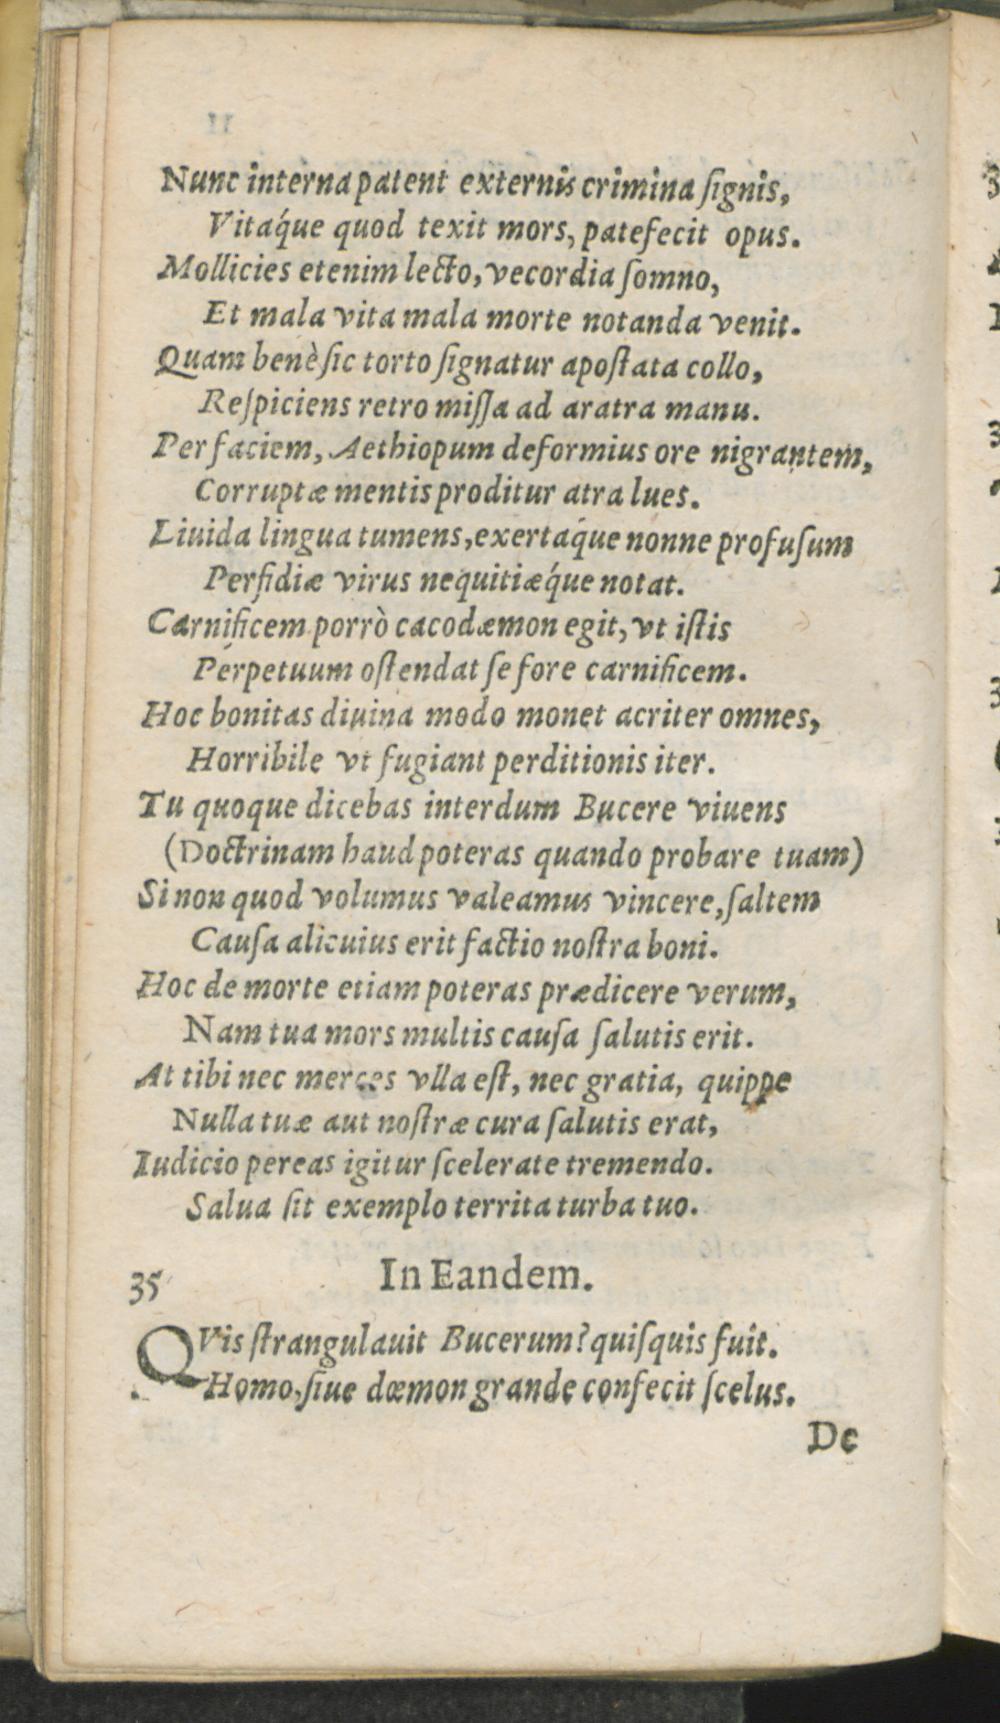 Nunc interna patent externis crimina ſignis,
Vitáque quod texit mors, patefecit opus.
Mollicies etenim lecto, vecordia ſomno,
Et mala vita mala morte notanda venit.
Quam benè ſic torto ſignatur apoſtata collo,
Reſpiciens retro miſſa ad aratra manu.
Per faciem, Aethiopum deformius ore nigrantem,
Corruptæ mentis proditur atra lues.
Liuida lingua tumens, exertáque nonne profuſum
Perfidiæ virus nequitiæque notat.
Carnificem porrò cacodæmon egit, vt iſtis
Perpetuum oſtendat ſe fore carnificem.
Hoc bonitas diuina modo monet acriter omnes,
Horribile vt fugiant perditionis iter.
Tu quoque dicebas interdum Bucere viuens
(Doctrinam haud poteras quando probare tuam)
Si non quod volumus valeamus vincere, ſaltem
Cauſa alicuius erit factio noſtra boni.
Hoc de morte etiam poteras prædicere verum,
Nam tua mors multis cauſa ſalutis erit.
At tibi nec merces vlla eſt, nec gratia, quippe
Nulla tuæ aut noſtræ cura ſalutis erat,
Iudicio pereas igitur ſcelerate tremendo.
Salua ſit exemplo territa turba tuo.
35 In Eandem.
QVis ſtrangulauit Bucerum? quiſquis fuit.
Homo, ſiue dœmon grande confecit ſcelus.
De